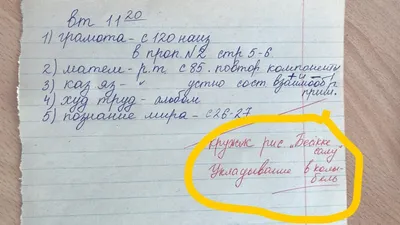 вт 11 20
1) грамота - с 120 наиз
в проп N2 стр 5-6.
2) матем - р.т. с 85. повтор компоненты
3) каз яз - " устно сост взаимообр.
прим.
4) худ труд - альбом
5) познание мира - с26-27
кружок рис. "Бесікке
салу"
Укладывание в колы-
бель